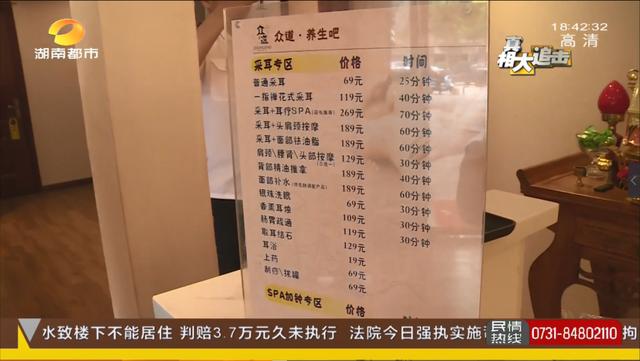 湖南都市
18:42:32
高清
真相大追击
众道·养生吧
采耳专区 价格 时间
普通采耳 69元 25分钟
一指禅花式采耳 119元 40分钟
采耳+耳疗SPA 269元 70分钟
采耳+头肩颈按摩 189元 60分钟
采耳+面部祛油脂 189元 60分钟
肩颈\腰肾\头部按摩 129元 30分钟
背部精油推拿 189元 40分钟
面部补水 189元 60分钟
银珠洗眼 69元 30分钟
香薰耳烛 69元 30分钟
肠胃疏通 109元 30分钟
取耳结石 119元
耳浴 129元
上药 19元
刮痧\拔罐 69元
69元
SPA加钟专区 价格
水致楼下不能居住 判赔3.7万元久未执行 法院今日强执实施
民情热线
0731-84802110
拘